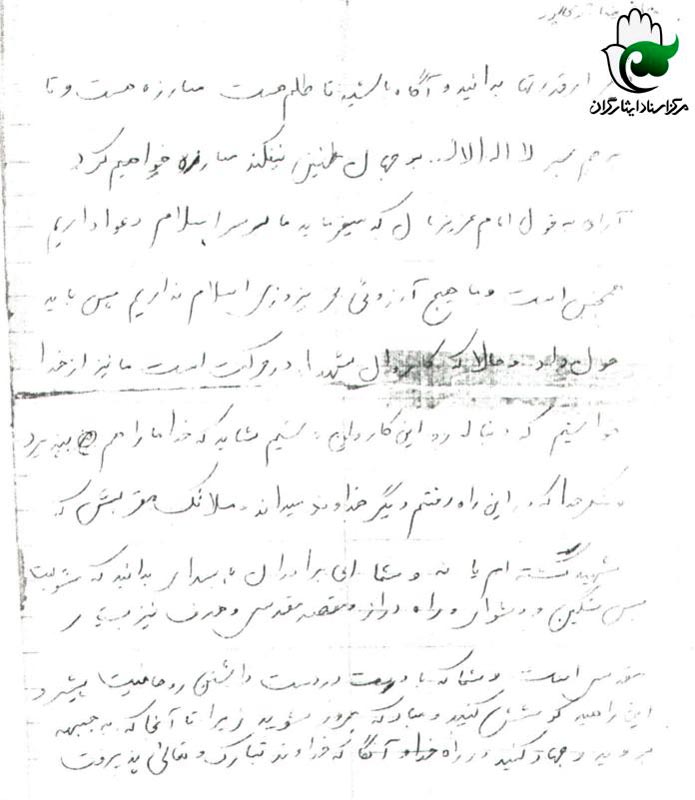 مرکز اسناد ایثارگران
ابرقدرتها بدانید و آگاه باشید تا ظلم هست مبارزه هست و تا
لا اله الا الله بر جهان طنین نیفکند مبارزه خواهیم کرد
به قول امام عزیزمان که میفرماید ما بر سر اسلام دعوا داریم
چنین است و ما هیچ آرزوئی جز پیروزی اسلام نداریم پس باید
و حالا که کاروان شهدا در حرکت است ما نیز از خدا
خواستیم که دنباله رو این کاروان باشیم شاید که خدا ما را هم بپذیرد
شکر خدا که در این راه رفتم دیگر خداوند میداند و ملائک مقربش که
شهید گشته ام یا نه و شما ای برادران پاسدار بدانید که مسئولیت
بس سنگین و دشوار و راه دراز و مقصد مقدس و هدف نیز بسیار
مقدس است و شما که با دست در دست داشتن روحانیت پیشرو
این راهید کوشش کنید و مبادا که مغرور شوید زیرا تا آنجا که به جبهه
بروید و جهاد کنید در راه خدا و آنگاه که خداوند تبارک و تعالی پذیرفت